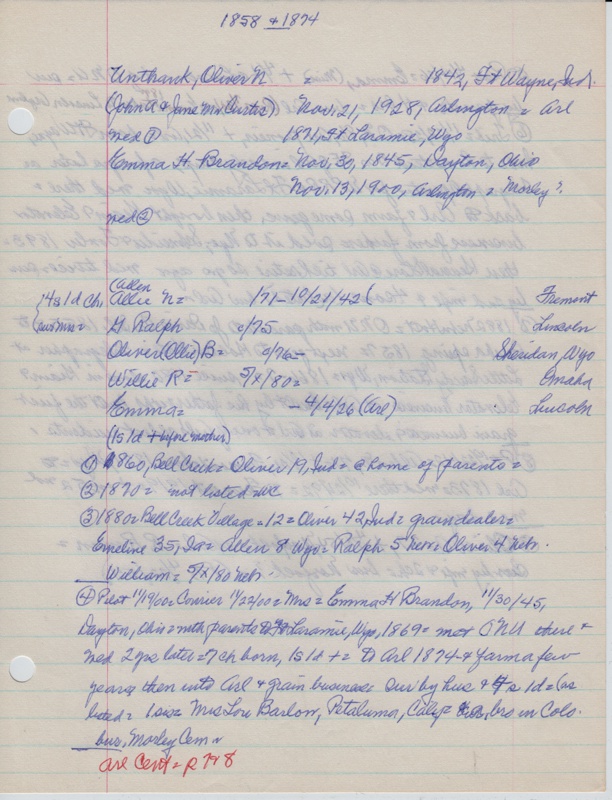 1858 & 1874
Unthank, Oliver N = 1842, Ft Wayne, Ind.
(John A & Jane Mc Curtis) Nov. 21, 1928, Arlington = Arl
med ① 1871, Ft Laramie, Wyo
Emma H. Brandon = Nov. 30, 1845, Dayton, Ohio
Nov. 13, 1900, Arlington = Morley?
med ②
Callen
4s 1d Ch. Allie N = 1/71 - 10/21/42 ( Fremont
sur mrs = G Ralph 9/75 Lincoln
Oliver (Ollie) B = 9/76 - Sheridan, Wyo
Willie R = 5/x/80 = Omaha
Emma = - 4/4/26 (Arl) Lincoln
(1s 1d + before mother)
① 1860, Bell Creek = Oliver 19, Ind = @ home of parents =
② 1870 = not listed WC
③ 1880 = Bell Creek Village = 12 = Oliver 42, Ind = grain dealer =
Emeline 35, Io = Allen 8 Wyo = Ralph 5 Nebr = Oliver 4 Nebr.
William = 5/x/80 Nebr.
④ Pilot 11/19/00 = Courier 11/22/00 = Mrs = Emma H Brandon, 11/30/45,
Dayton, Ohio = with parents to Ft Laramie, Wyo, 1869 = met ONU there &
med 2 yrs later = 7 ch born, 1s 1d + = to Arl 1874 & farm a few
years, then into Arl & grain business = sur by hus & 4s 1d = (as
listed = 1 sis = Mrs Lou Barlow, Petaluma, Calif = bro in Colo.
bur, Morley Cem
Arl Cent = p 778